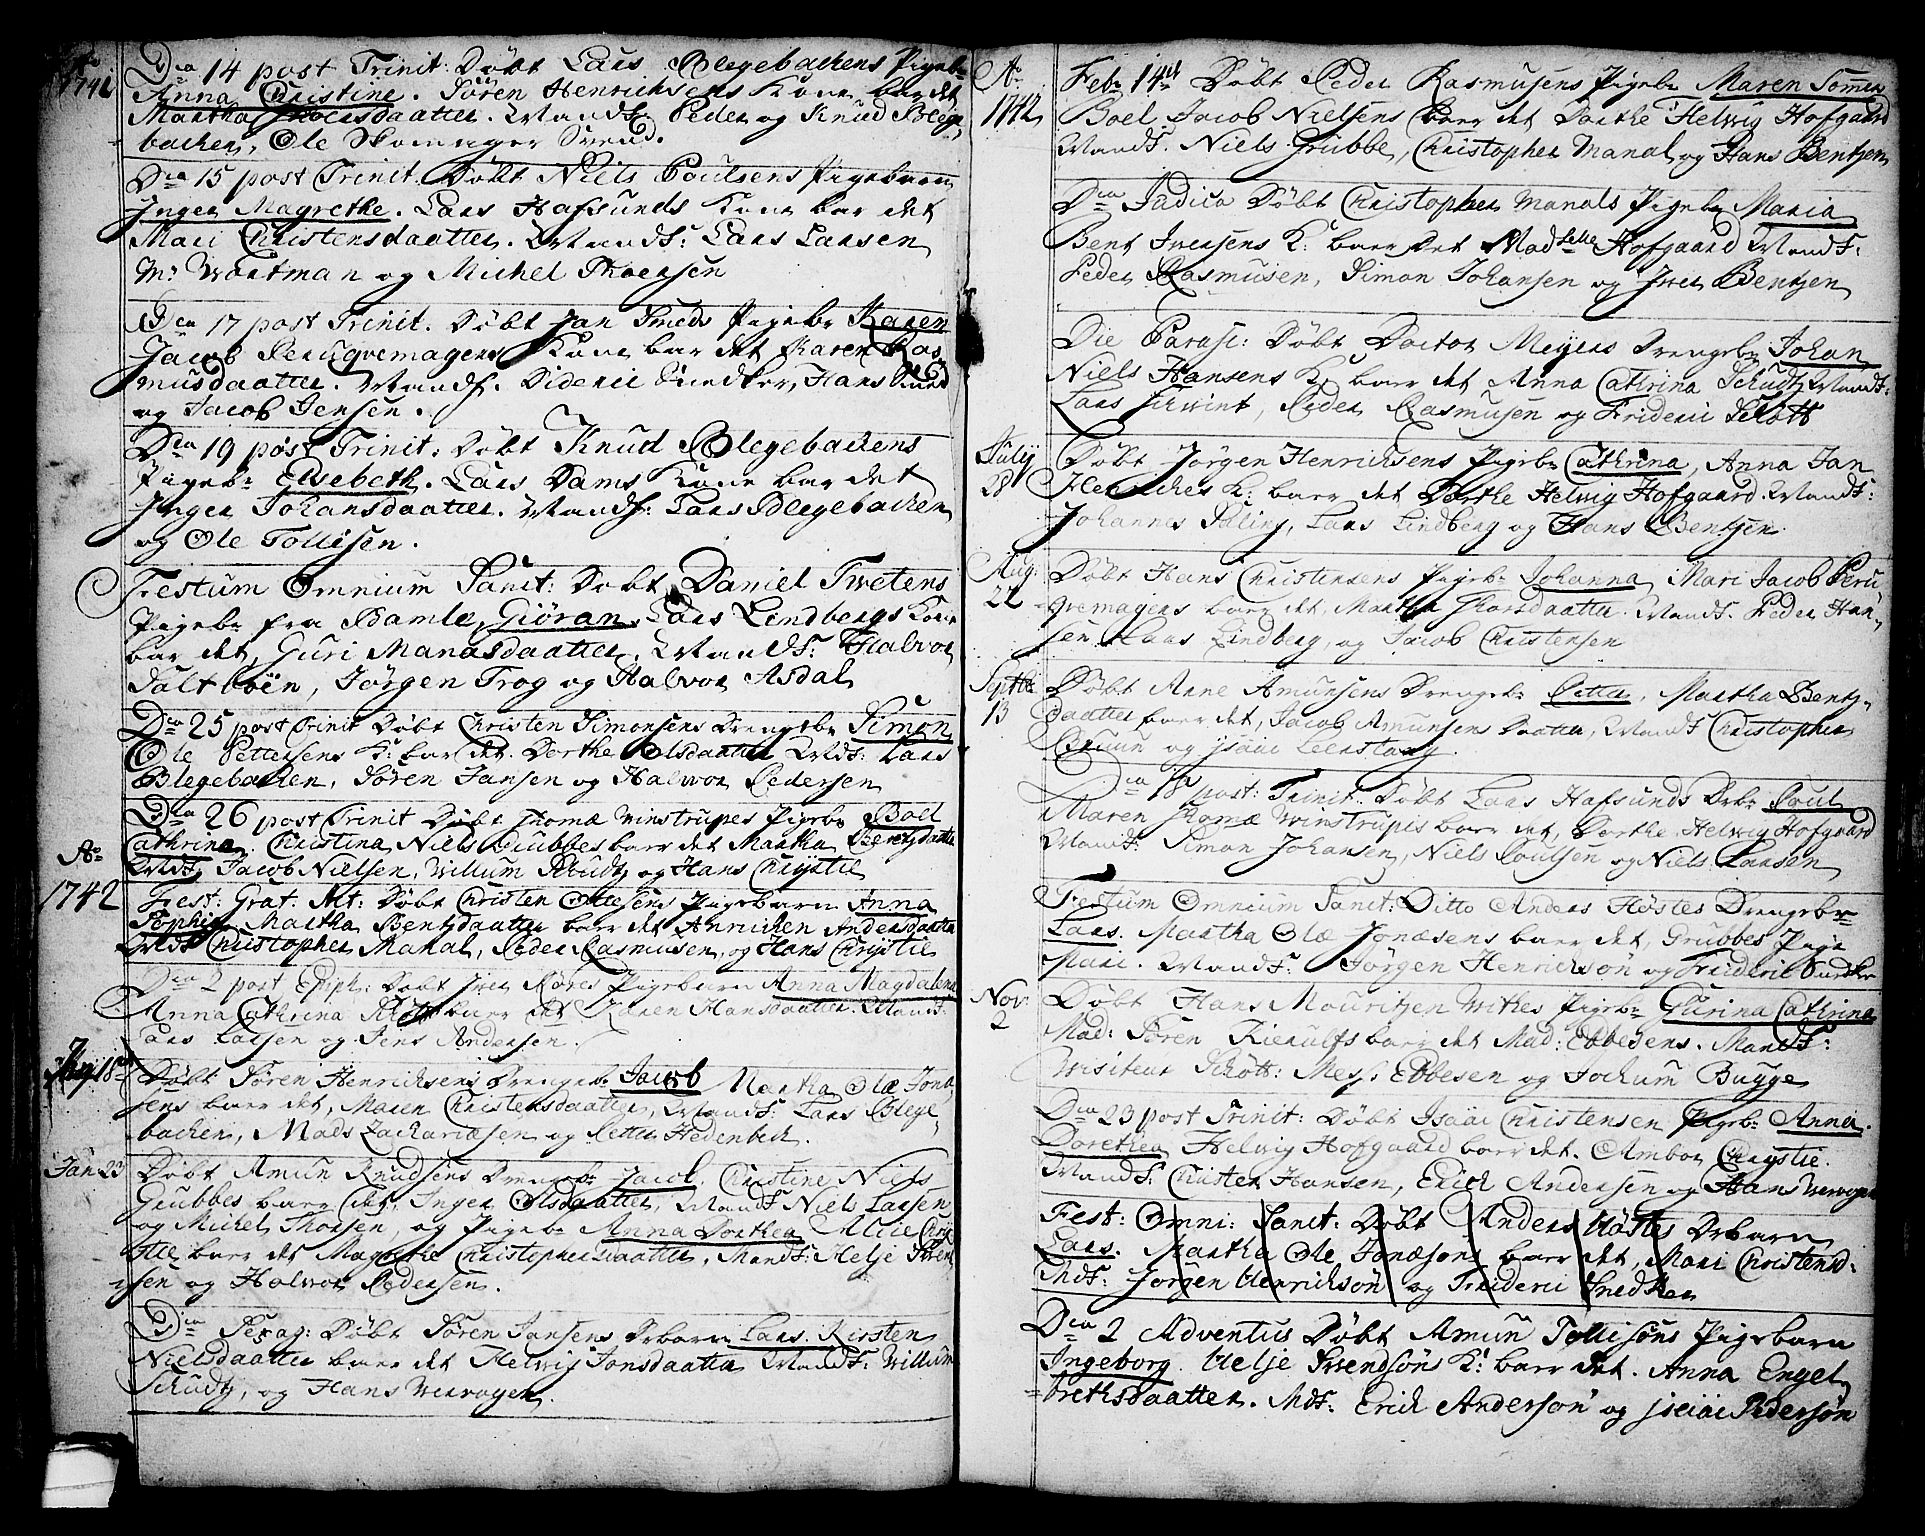 Ao 1741
Dca 14 post Trinit: Döbt Lars Blegebackens Pigeb:
Anna Christine. Sören Henrichsens Kone bar det
Martha Thorsdaatter. Mandf: Peder og Knud Blege,
backen, Ole Skomager Svend.
Dca 15 post Trinit. Döbt Niels Poulsens Pigebarn
Inger Magrethe. Lars Hafsunds Kone bar det
Mari Christensdaatter. Mandf: Lars Larsen
Mr Wortman og Michel Thoersen
Dca 17 post Trinit. Döbt Jan Smeds Pigeb: Karen
Jacob Peruqvemagers Kone bar det Karen Ras,
musdaatter. Mandf. Dideric Snedker, Hans Smed
og Jacob Jensen.
Dca 19 post Trinit: Döbt Knud Blegebackens
Pigeb: Elsebeth. Lars Dams Kone bar det
Inger Johansdaatter. Mandf: Lars Blegebacken
og Ole Tollisen.
Festum Omnium Sanct: Döbt Daniel Twetens
Pigeb: fra Bamle, Giöran, Lars Lindbergs Kone
bar det, Guri Manasdaatter. Mandf: Halvor
Saltboen, Jörgen Trog og Halvor Asdal
Dca 25 post Trinit Döbt Christen Simonsens Drengeb: Simon
Ole Pettersens K: bar det Dorthe Olsdaatter Mdf: Lars
Blegebacken, Sören Jansen og Halvor Pedersen
Dca 26 post Trinit Döbt Thomæ Winstrupes Pigeb: Boel
Cathrina. Christina Niels Grubbes barr det Martha Bentzdaatter
Mdf: Jacob Nielsen, Willum Schudtz og Hans Chrystie
Ao 1742
Fest: Grat: Mt: Döbt Christen Olesens Pigebarn Anna
Sophie. Martha Bentzdaatter baer det Annichen Andersdaatter
Mdf: Christopher Manal, Peder Rasmusen, og Hans Chrystie
Dca 2 post Epiph: Döbt Iver Röres Pigebarn Anna Magdalena
Anna Cathrina Skött baer det Karen Hansdaatter. Mandf:
Lars Larsen og Jens Andersen.
18
Döbt Sören Henrichsens Drengeb: Jacob Martha Olæ Jona,
sens baer det, Maren Christensdaatter, Mandf: Lars Blege,
backen, Mads Zachariæsen og Petter Hedenbech.
Jan: 23
Döbt Amun Knudsens Drengeb: Jacob. Christine Niels
Grubbes baer det, Inger Olsdaatter, Mandf Niels Larsen
og Michel Thorsen, og Pigeb: Anna Dorthea Alcie Chry
stie baer det Magrethe Christopher daatter, Mandf: Helje Swend
sen og Halvor Pedersen.
Dca Sexag: Döbt Sören Jansens Drbarn Lars. Kirsten
Nielsdaatter baer det Helvig Jonsdaatter Mandf: Willum
Schudtz, og Hans Wervogen.
Ao 1742
Feb: 14de Döbt Peder Rasmusens Pigeb: Maren Sommer
Boel Jacob Nielsens baer det Dorthe Helwig Hofgaard
Mandf. Niels Grubbe, Christopher Manal og Hans Bentzen
Dca Judica Döbt Christopher Manals Pigeb: Maria
Bent Iwersens K: baer det Madselle Hofgaard Mandf:
Peder Rasmusen, Simon Johansen og Iwer Bentzen
Die Parasc: Döbt Doctor Meyers Drengeb: Johan
Niels Hansens K: baer det Anna Cathrina Schudtz Mandf:
Lars, Peder Rasmusen og Frideric Skött
July 28
Döbt Jörgen Henrichsens Pigeb: Cathrina, Anna Jan
Henriches K: baer det Dorthe Helwig Hofgaard Mandf:
Johannes, Lars Lindberg og Hans Bentzen.
Aug: 22
Döbt Hans Christensens Pigeb: Johanna, Mari Jacob Peru
qvemagers baer det, Martha Thorsdaatter. Mandf. Peder Han,
sen Lars Lindberg, og Jacob Christensen
Septbr 13
Döbt Anne Amunsens Drengeb: Petter, Martha Bentz,
daatter baer det, Jacob Amunsens Daatter, Mandf Christopher
og Isaac Leerstang.
Dca 18 post: Trinit: Döbt Lars Hafsunds Drb: Poul
Maren Thomæ Winstrupis baer det, Dorthe Helwig Hofgaard
Mandf: Simon Johansen, Niels Poulsen og Niels Larsen
Festum Omnium Sanct: Ditto Anders Höstes Drengebr
Lars. Martha Olæ Jonæsens baer det, Grubbes Pige
Mari. Mandf: Jörgen Henrichsön og Frideric Snedker
Nov: 2
Döbt Hans Mouritzen Withes Pigeb: Gurina Cathrina
Mad: Sören Kierulfs baer det Mad: Ebbesens. Mandf:
Wisiteur Skött: Mesr: Ebbesen og Jochum Bugge
Dca 23 post Trinit: Döbt Isaac Christensen Pigeb: Anna
Dorethea Helwig Hofgaard baer det. Ambor Chrystie.
Mandf: Christen Hansen, Erich Andersen og Hans Wervogen
Fest: Omni: Sanct: Döbt Anders Höstes Drbarn
Lars. Martha Ole Jonæsöns baer det, Mari Christensd:
Mdf: Jörgen Henrichsön og Frideric Snedker
Dca 2 Adventus Döbt Amun Tollisöns Pigebarn
Ingeborg. Helje Swendsöns K: baer det. Anna Engel,
brethsdaatter. Mdf: Erich Andersön og Isaac Pedersön